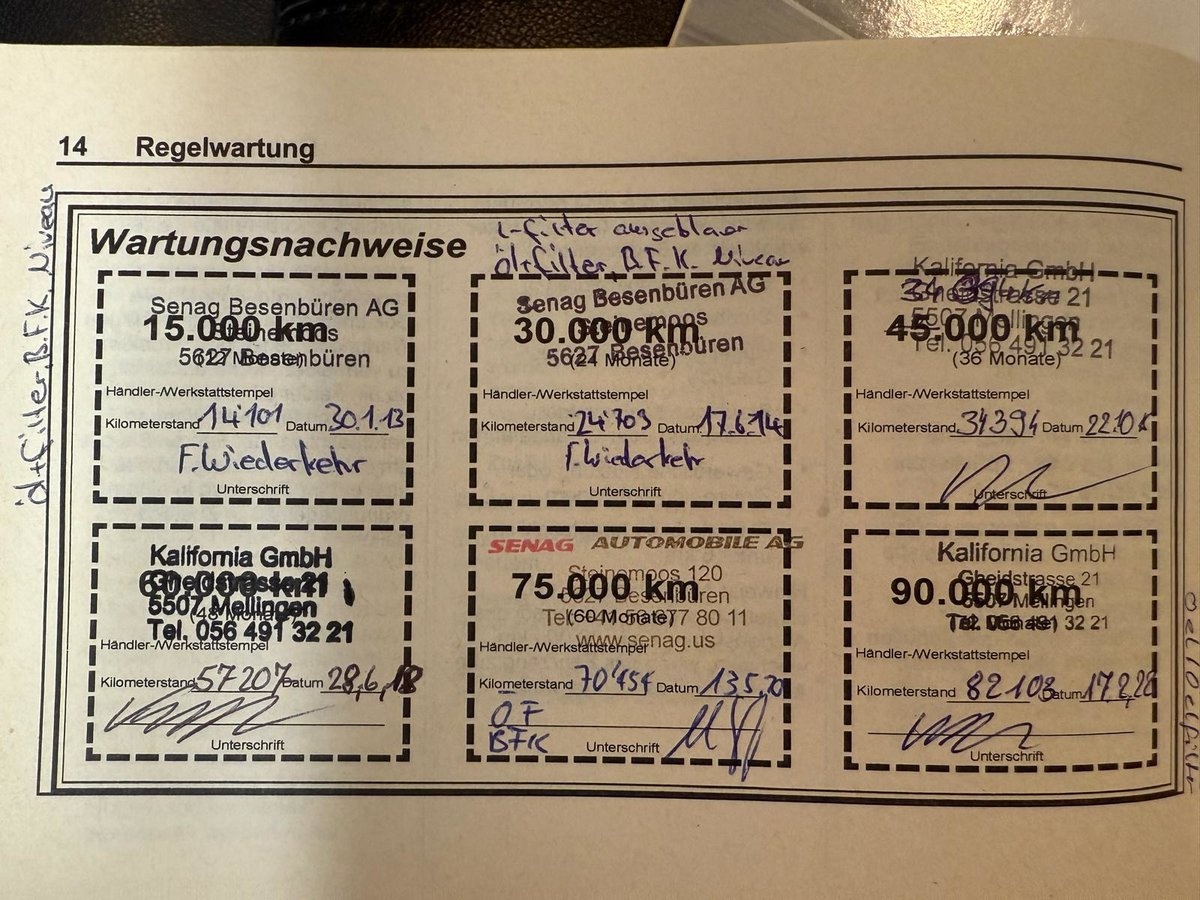 14 Regelwartung
Öl+Filter, B.F.K. Niveau
Wartungsnachweise
L-Filter ausgeblasen
Öl+Filter, B.F.K. Niveau
Senag Besenbüren AG
15.000 km
Steinemoos
(12 Monate)
5627 Besenbüren
Händler-/Werkstattstempel
Kilometerstand 14'101 Datum 30.1.13
F.Wiederkehr
Unterschrift
Senag Besenbüren AG
30.000 km
Steinemoos
(24 Monate)
5627 Besenbüren
Händler-/Werkstattstempel
Kilometerstand 24'709 Datum 17.6.14
F.Wiederkehr
Unterschrift
Kalifornia GmbH
Gheidstrasse 21
45.000 km
5507 Mellingen
Tel. 056 491 32 21
(36 Monate)
Händler-/Werkstattstempel
Kilometerstand 34394 Datum
Unterschrift
Kalifornia GmbH
Gheidstrasse 21
60.000 km
5507 Mellingen
(48 Monate)
Tel. 056 491 32 21
Händler-/Werkstattstempel
Kilometerstand 57207 Datum 28,6,18
Unterschrift
SENAG AUTOMOBILE AG
Steinemoos 120
75.000 km
5627 Besenbüren
(60 Monate)
Tel. 77 80 11
www.senag.us
Händler-/Werkstattstempel
Kilometerstand 70'454 Datum 13.5.20
ÖF
BFK
Unterschrift
Kalifornia GmbH
Gheidstrasse 21
90.000 km
5507 Mellingen
Tel. 056 491 32 21
Händler-/Werkstattstempel
Kilometerstand 82103 Datum
Unterschrift